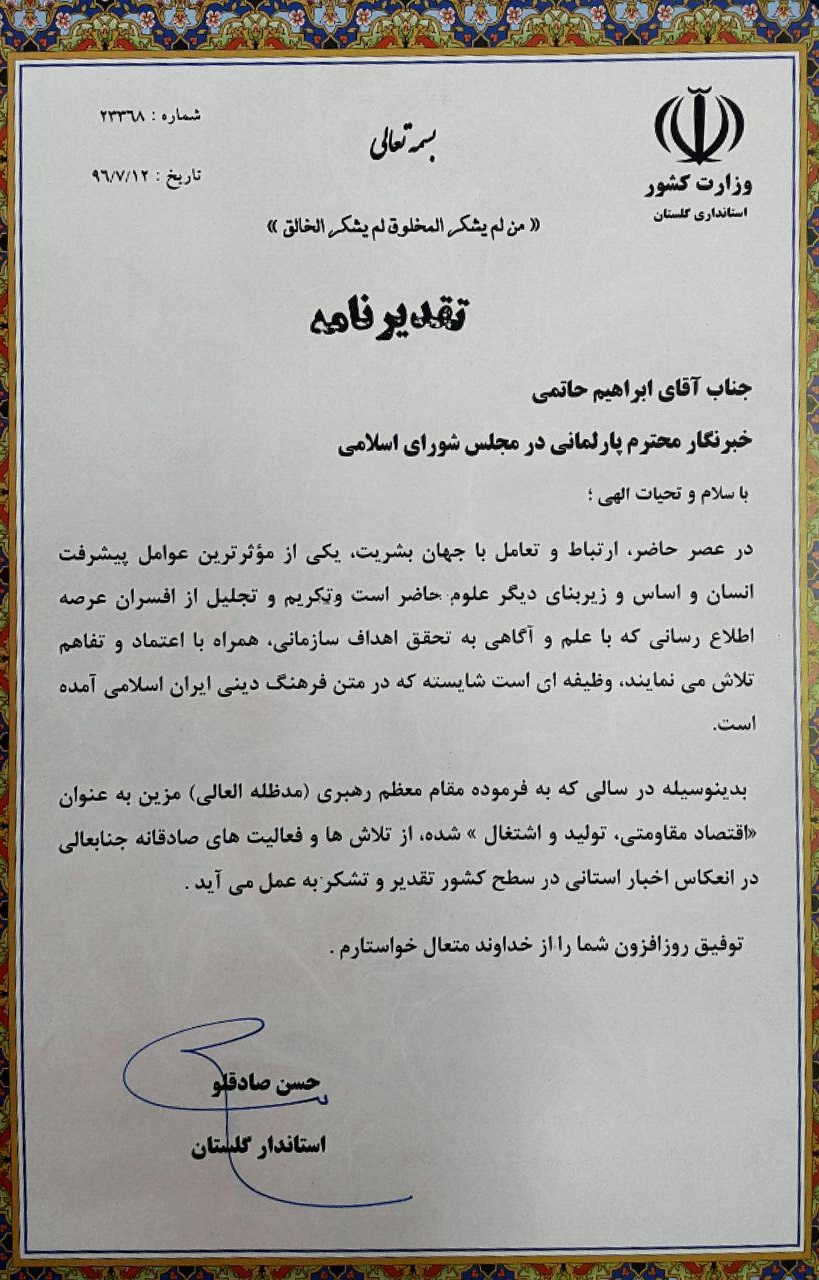 وزارت کشور
استانداری گلستان
شماره : ۲۳۳۶۸
تاریخ : ۹۶/۷/۱۲
بسمه تعالی
« من لم یشکر المخلوق لم یشکر الخالق »
تقدیرنامه
جناب آقای ابراهیم حاتمی
خبرنگار محترم پارلمانی در مجلس شورای اسلامی
با سلام و تحیات الهی ؛
در عصر حاضر، ارتباط و تعامل با جهان بشریت، یکی از مؤثرترین عوامل پیشرفت
انسان و اساس و زیربنای دیگر علوم حاضر است وتکریم و تجلیل از افسران عرصه
اطلاع رسانی که با علم و آگاهی به تحقق اهداف سازمانی، همراه با اعتماد و تفاهم
تلاش می نمایند، وظیفه ای است شایسته که در متن فرهنگ دینی ایران اسلامی آمده
است.
بدینوسیله در سالی که به فرموده مقام معظم رهبری (مدظله العالی) مزین به عنوان
«اقتصاد مقاومتی، تولید و اشتغال » شده، از تلاش ها و فعالیت های صادقانه جنابعالی
در انعکاس اخبار استانی در سطح کشور تقدیر و تشکر به عمل می آید .
توفیق روزافزون شما را از خداوند متعال خواستارم .
حسن صادقلو
استاندار گلستان